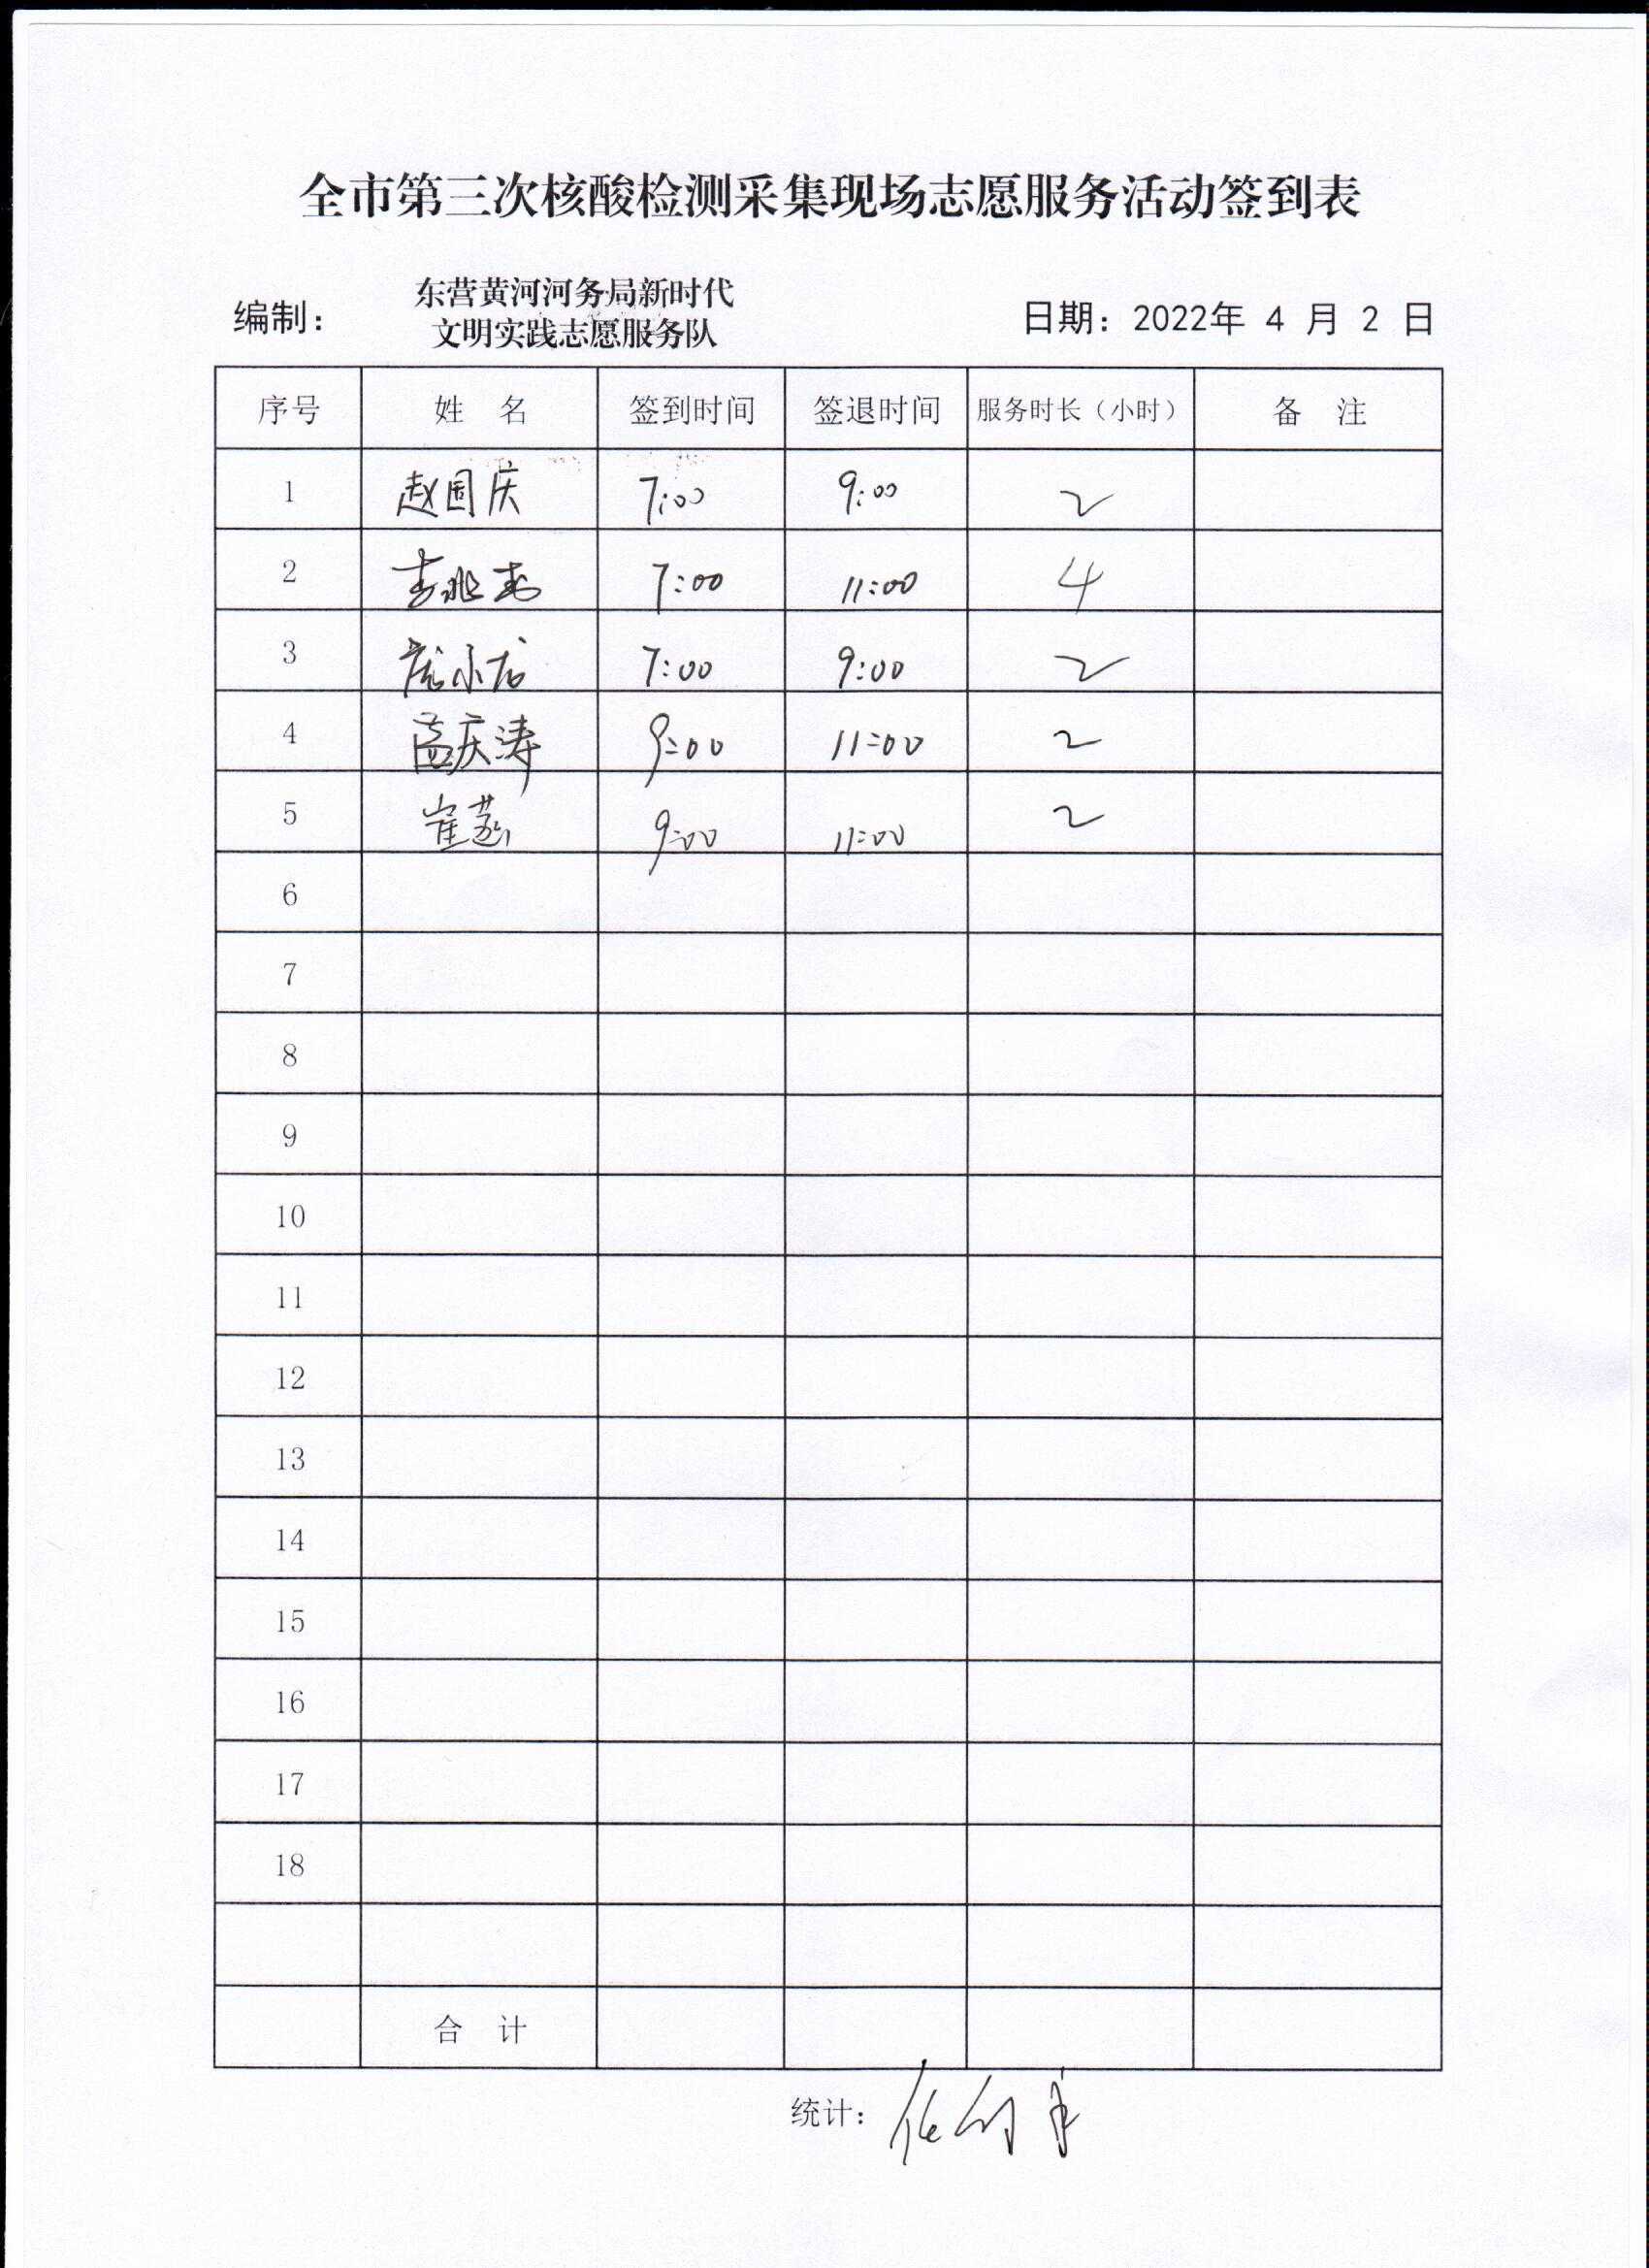 全市第三次核酸检测采集现场志愿服务活动签到表
编制： 东营黄河河务局新时代 文明实践志愿服务队 日期：2022年 4 月 2 日
序号 姓 名 签到时间 签退时间 服务时长（小时） 备 注
1 赵国庆 7:00 9:00 2
2 7:00 11:00 4
3 7:00 9:00 2
4 孟庆涛 9:00 11:00 2
5 崔燕 9:00 11:00 2
6
7
8
9
10
11
12
13
14
15
16
17
18
合 计
统计：